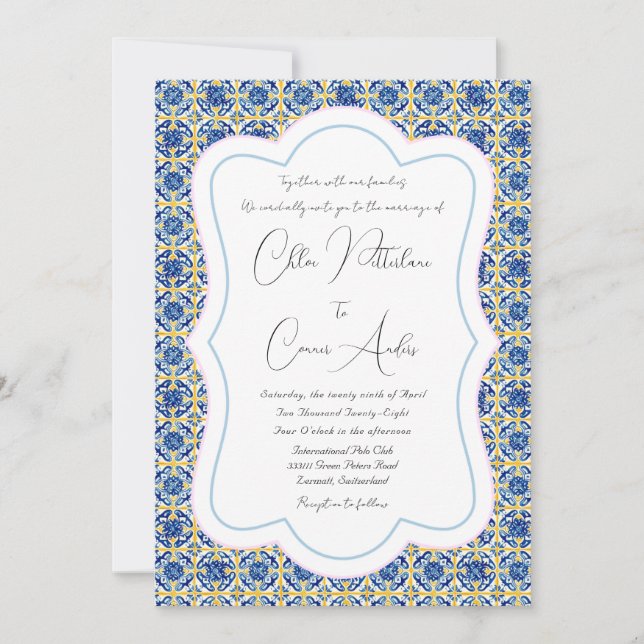 Together with our families,
We cordially invite you to the marriage of
Chloe Netterlane
To
Conner Anders
Saturday, the twenty ninth of April
Two Thousand Twenty-Eight
Four O'clock in the afternoon
International Polo Club
333111 Green Peters Road
Zermatt, Switzerland
Reception to follow